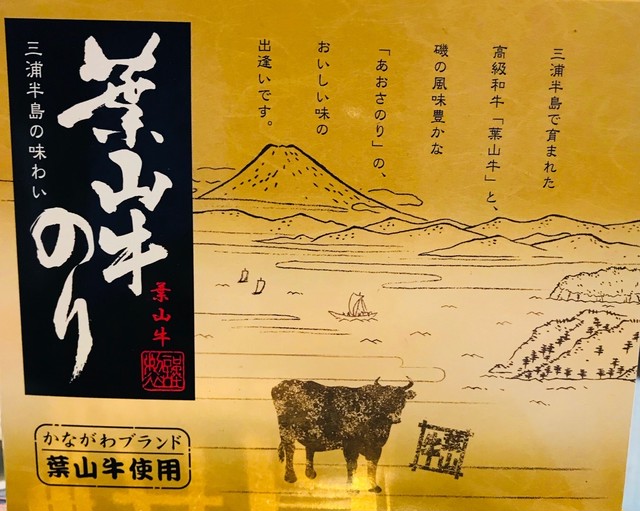 三浦半島で育まれた
高級和牛「葉山牛」と、
磯の風味豊かな
「あおさのり」の、
おいしい味の
出逢いです。
葉山牛のり
三浦半島の味わい
葉山牛
かながわブランド
葉山牛使用
葉山牛